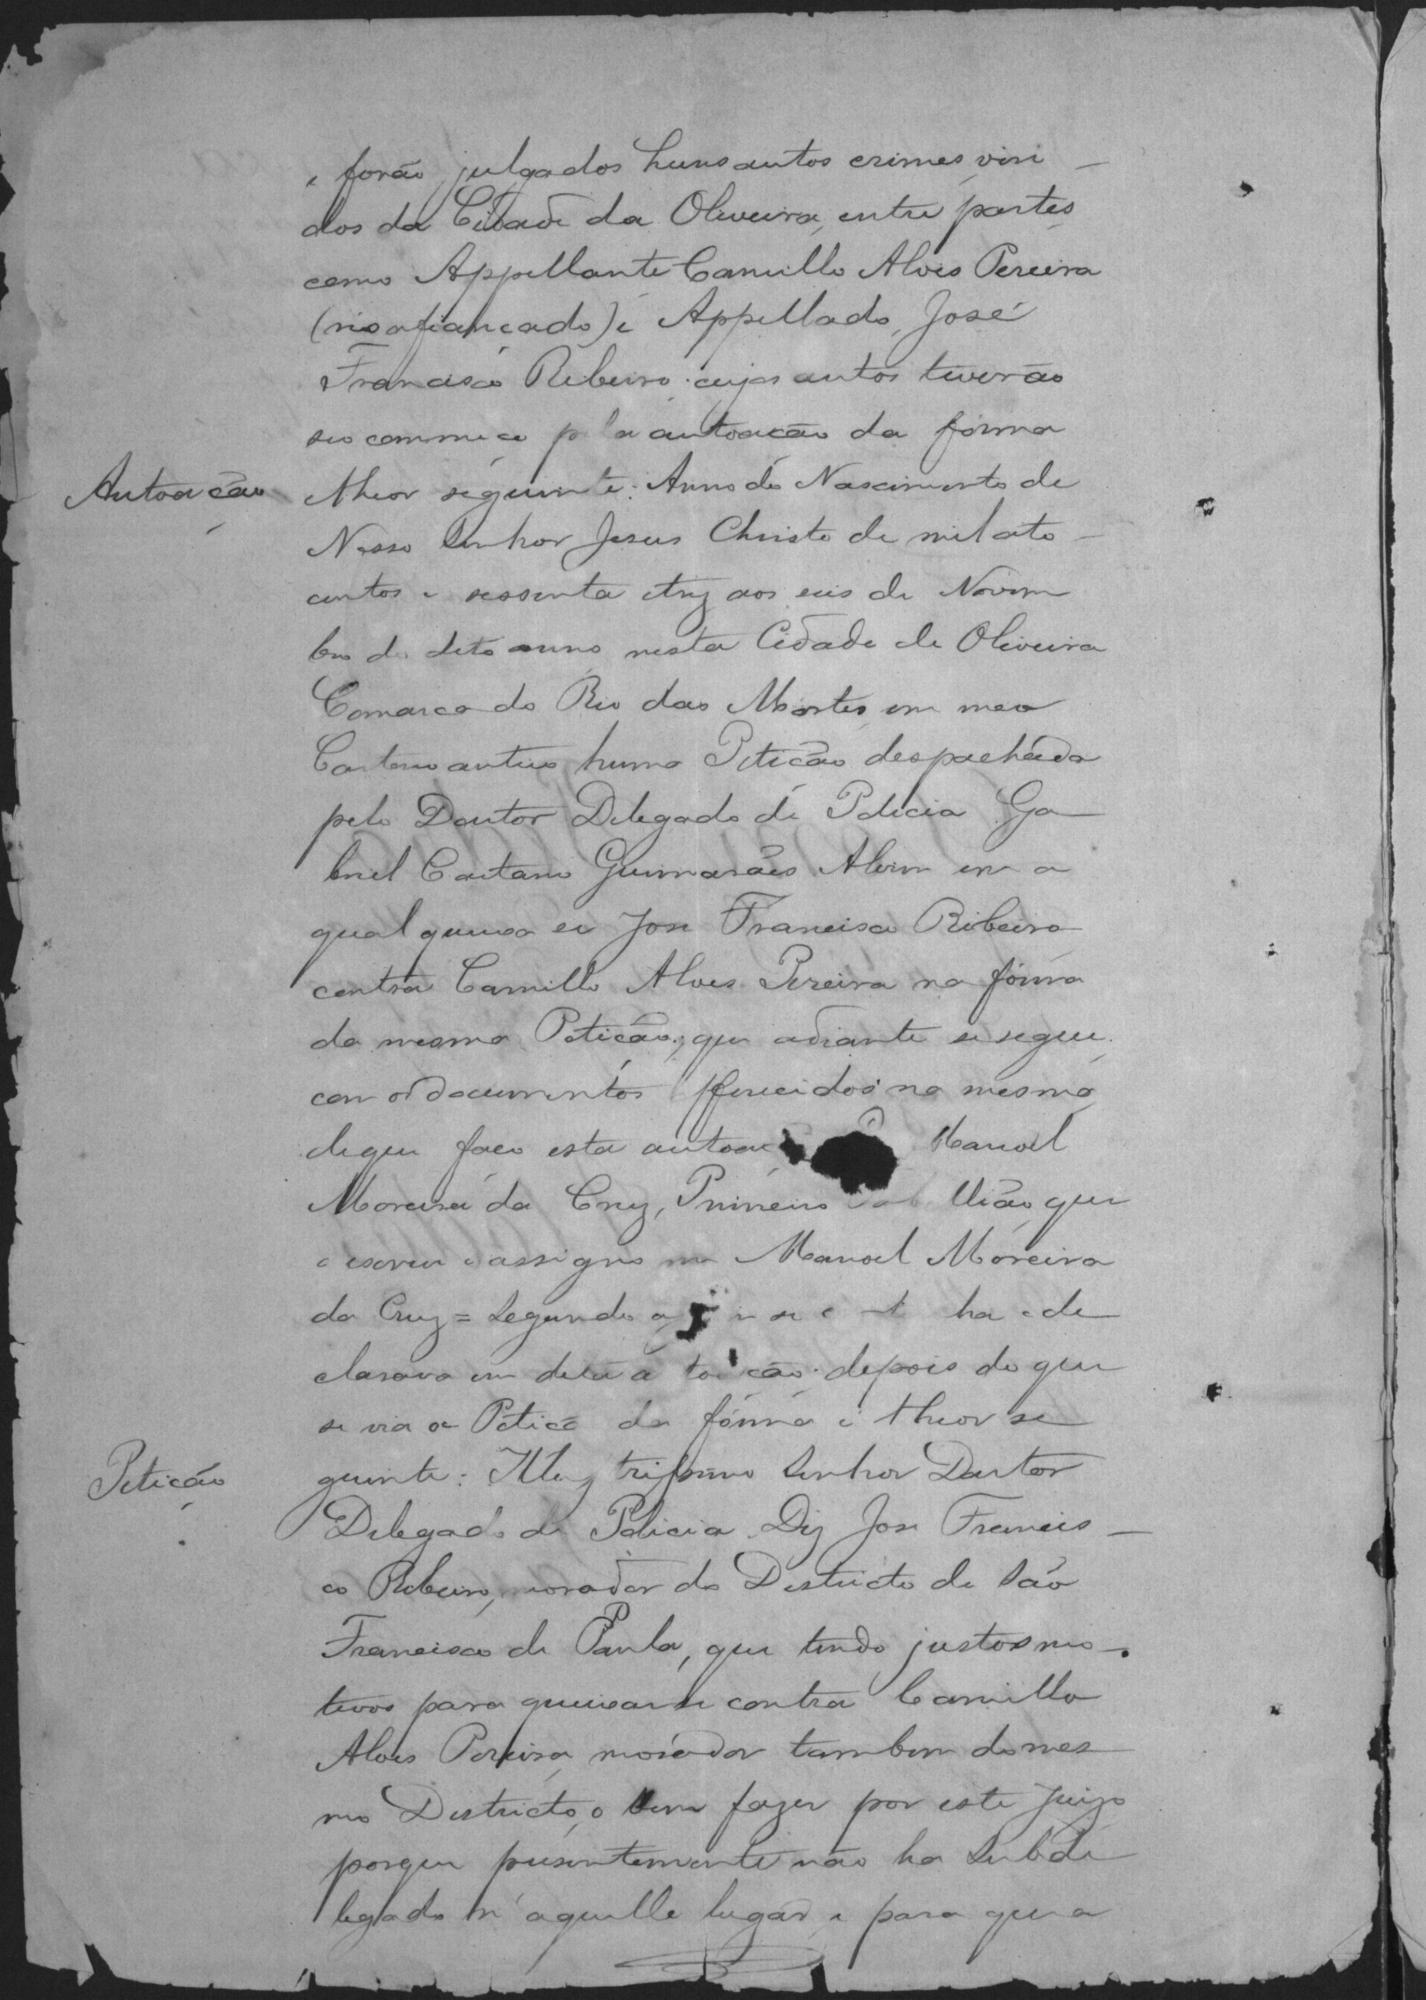 e forão julgados huns autos crimes vin-
dos da Cidade da Oliveira, entre partes
como Appellante Camillo Alves Pereira
(reo afiançado) e Appellado José
Francisco Ribeiro cujos autos tiverão
seo commeço pela autoacão da forma
Autoacão
theor seguinte: Anno do Nascimento de
Nosso Senhor Jesus Christo de mil oito-
centos e sessenta e trez aos seis de Novem
bro do dito anno nesta Cidade de Oliveira
Comarca do Rio das Mortes em meo
Cartorio autuo huma Peticão despachada
pelo Doutor Delegado de Policia Ga-
briel Caetano Guimarães Alvim em a
qual queixa se José Francisco Ribeiro
contra Camillo Alves Pereira na fórma
da mesma Peticão, que adiante se segue
com os documentos offerecidos na mesma
de que faco esta autoac Manoel
Moreira da Cruz, Primeiro Tabellião que
o escrevi e assigno Manoel Moreira
da Cruz = Segundo ha e de
clarava em dita autoacão depois do que
se via a Peticão da fórma e theor se
Peticão
guinte: Illustrissimo Senhor Doutor
Delegado de Policia Diz José Francis-
co Ribeiro, morador do Districto de São
Francisco de Paula, que tendo justos mo-
tivos para queixar se contra Camillo
Alves Pereira morador tambem do mes
mo Districto, o vem fazer por este Juizo
porque presentemente não ha Subde
legado n'aquelle lugar e para que a